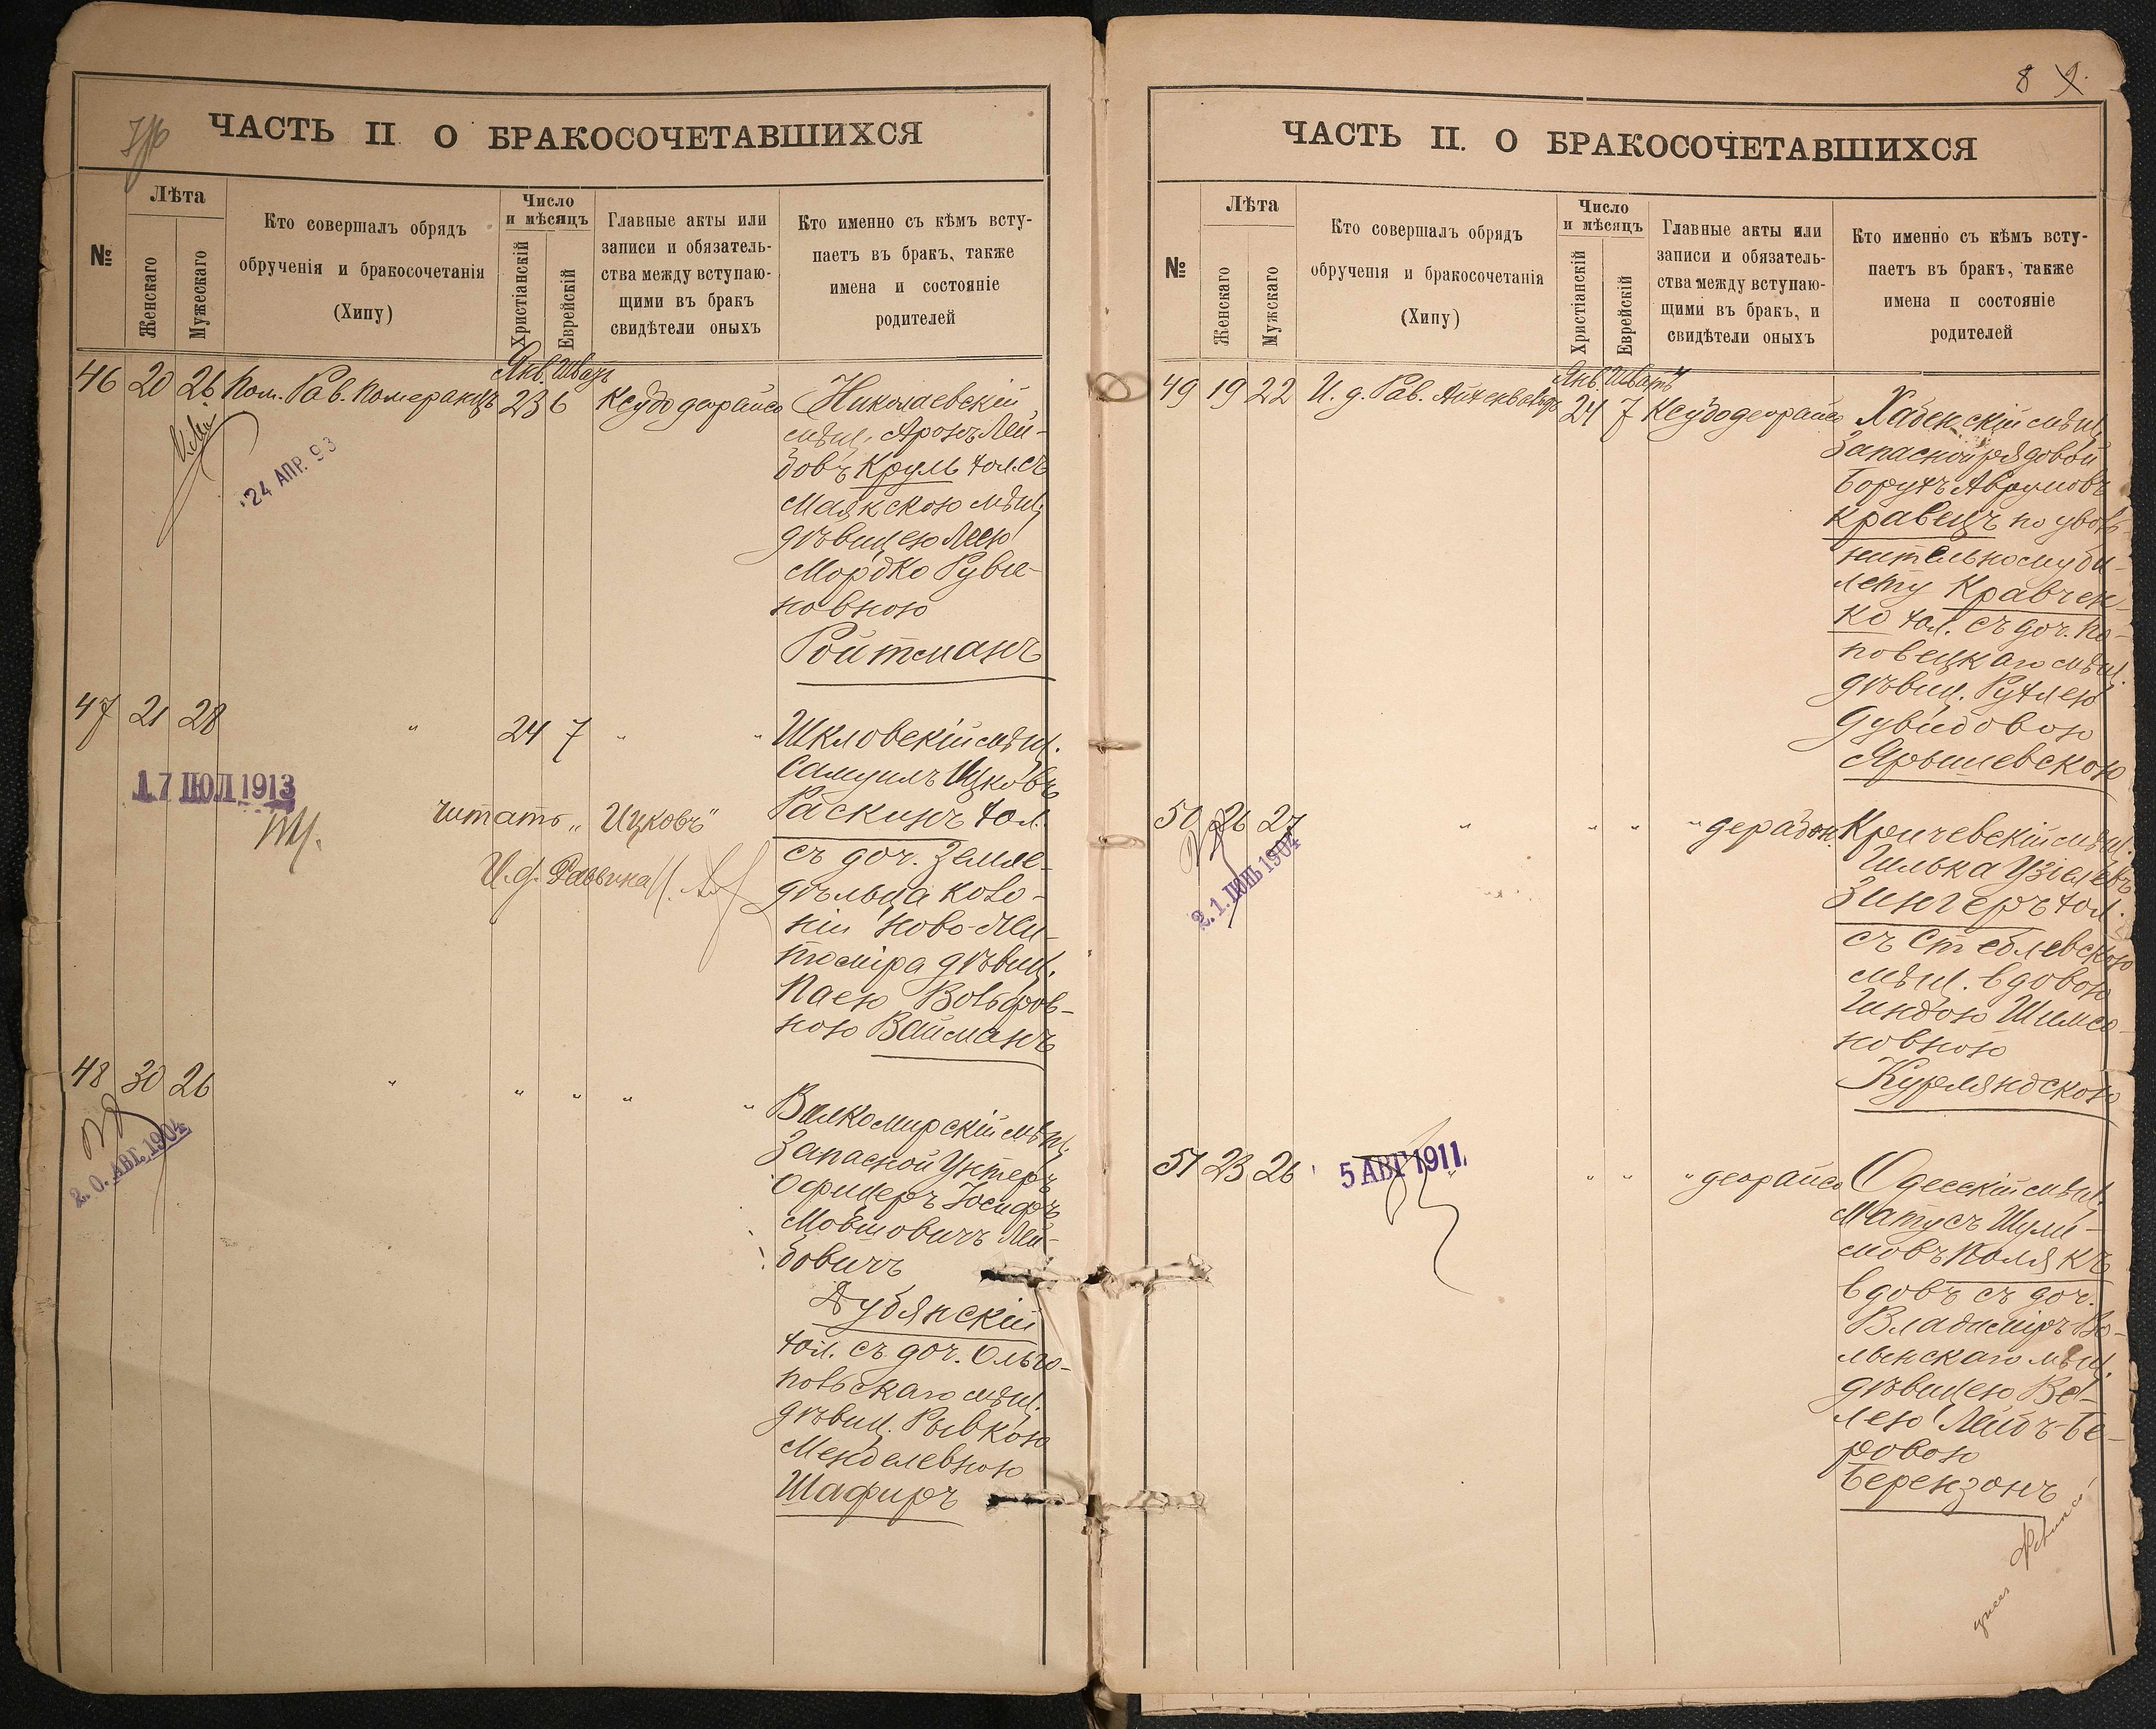 ЧАСТЬ II. О БРАКОСОЧЕТАВШИХСЯ
№
Лѣта
Женскаго
Мужескаго
Кто совершалъ обрядъ
обрученія и бракосочетанія
(Хипу)
Число
и мѣсяцъ
Христіанскій
Еврейскій
Главные акты или
записи и обязатель-
ства между вступаю-
щими въ бракъ
свидѣтели оныхъ
Кто именно съ кѣмъ всту-
паетъ въ бракъ, также
имена и состояніе
родителей
Янв. Шватъ
46 20 26 Пом. Рав. Померанцъ 23 6 Ксубо деорайсо Николаевскій
24 АПР. 93
мѣщ. Аронъ Лей-
бовъ Круль хол. съ
Маякскою мѣщ.
дѣвицею Леею
Мордко Руви-
новною
Ройтманъ
47 21 28 " 24 7 " " Шкловскій мѣщ.
17 ІЮЛ 1913
Самуилъ Ицковъ
читать „Ицковъ"
Раскинъ хол.
И. д. Раввина
съ доч. Земле-
дѣльца коло-
ніи Ново-Жи-
томіра дѣвиц.
Паею Вольфов-
ною Вайсманъ
48 30 26 " " " " " Вилкомирскій мѣщ.
2. 0. АВГ. 1904
Запасной Унтеръ
Офицеръ Іосифъ
Мовшовичъ Лей-
бовичъ
Дубянскій
хол. съ доч. Ольго-
польскаго мѣщ.
дѣвиц. Рывкою
Менделевною
Шафиръ
8
ЧАСТЬ II. О БРАКОСОЧЕТАВШИХСЯ
№
Лѣта
Женскаго
Мужскаго
Кто совершалъ обрядъ
обрученія и бракосочетанія
(Хипу)
Число
и мѣсяцъ
Христіанскій
Еврейскій
Главные акты или
записи и обязатель-
ства между вступаю-
щими въ бракъ, и
свидѣтели оныхъ
Кто именно съ кѣмъ всту-
паетъ въ бракъ, также
имена и состояніе
родителей
Янв. Шватъ
49 19 22 И. д. Рав. Айхенвальдъ 24 7 Ксубо деорайсо Хабенскій мѣщ.
Запасной рядовой
Борухъ Аврумовъ
Кравецъ по уволь-
нительному би-
лету Кравчен-
ко хол. съ доч. По-
повецкаго мѣщ.
дѣвиц. Рухлею
Дувидовою
Ярышевскою
50 26 27 " " " " дерабон. Кричевскій мѣщ.
2. 1. ІЮНЬ 1904
Гилька Узіелевъ
Зингеръ хол.
съ Стеблевскою
мѣщ. вдовою
Гиндою Шимсо-
новною
Курляндскою
51 23 26 " " " " деорайсо Одесскій мѣщ.
5 АВГ 1911
Матусъ Шули-
мовъ Полякъ
вдовъ съ доч.
Владиміръ-Во-
лынскаго мѣщ.
дѣвицею Бей-
лею Лейбъ-Бе-
ровою
Берензонъ